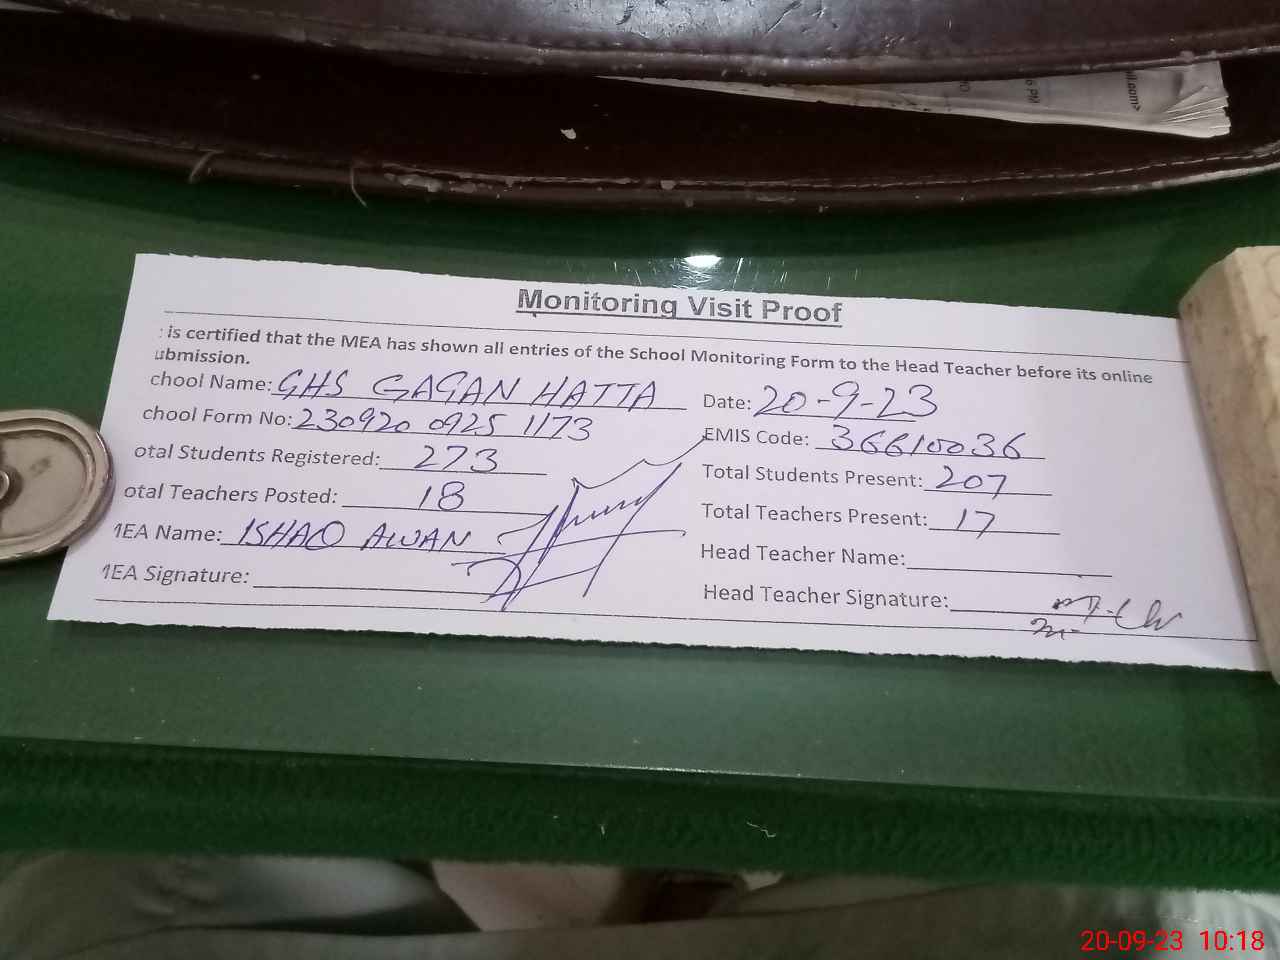 Monitoring Visit Proof
: is certified that the MEA has shown all entries of the School Monitoring Form to the Head Teacher before its online
ubmission.
chool Name: GHS GAGAN HATTA Date: 20-9-23
chool Form No: 230920 0925 1173 EMIS Code: 36610036
otal Students Registered: 273 Total Students Present: 207
otal Teachers Posted: 18 Total Teachers Present: 17
MEA Name: ISHAQ AWAN Head Teacher Name:
MEA Signature: Head Teacher Signature:
6 PM
20-09-23 10:18